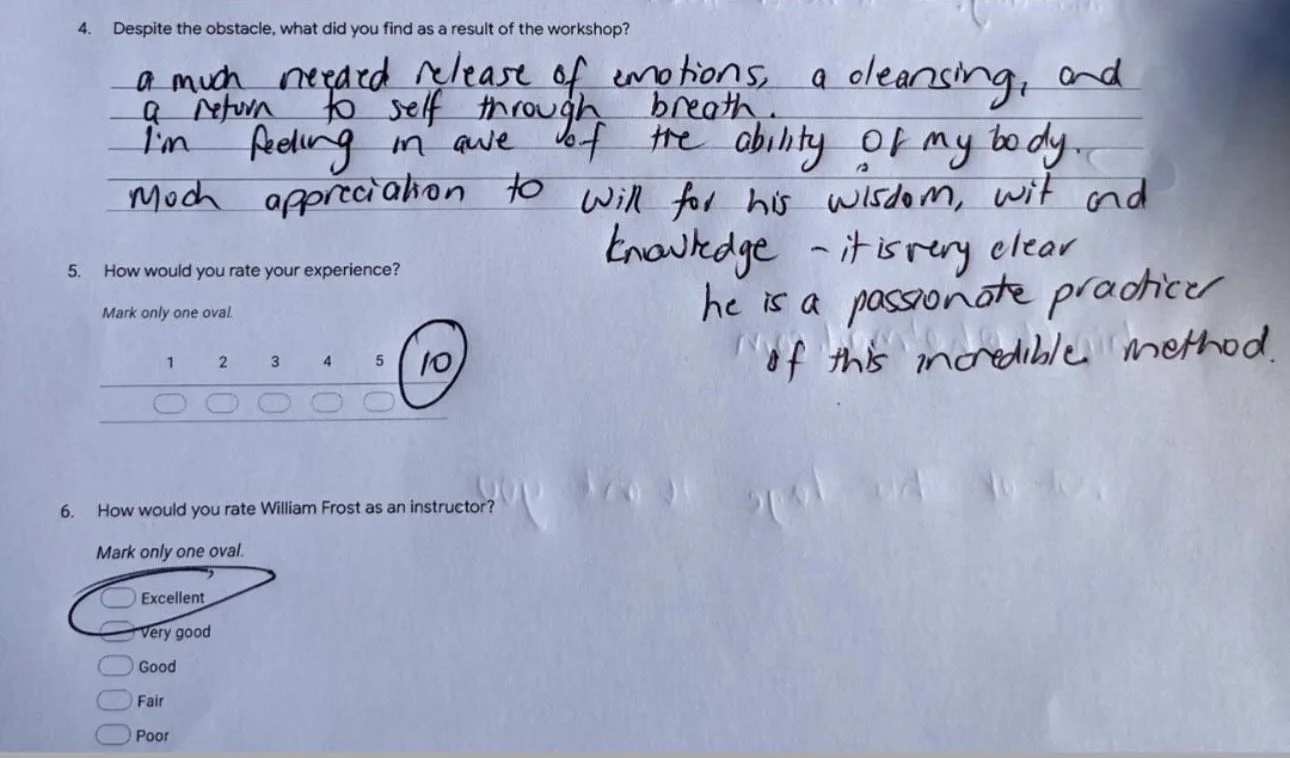 4. Despite the obstacle, what did you find as a result of the workshop?
a much needed release of emotions, a cleansing, and
a return to self through breath.
I'm feeling in awe of the ability of my body.
Much appreciation to Will for his wisdom, wit and
knowledge - it is very clear
he is a passionate practicer
of this incredible method.
5. How would you rate your experience?
Mark only one oval.
1 2 3 4 5 10
6. How would you rate William Frost as an instructor?
Mark only one oval.
Excellent
Very good
Good
Fair
Poor